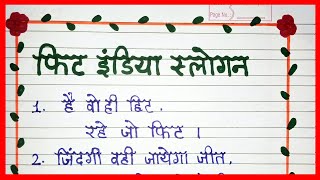 Page No.
फिट इंडिया स्लोगन
1. है वो ही हिट,
रहे जो फिट ।
2. जिंदगी वही जायेगा जीत,